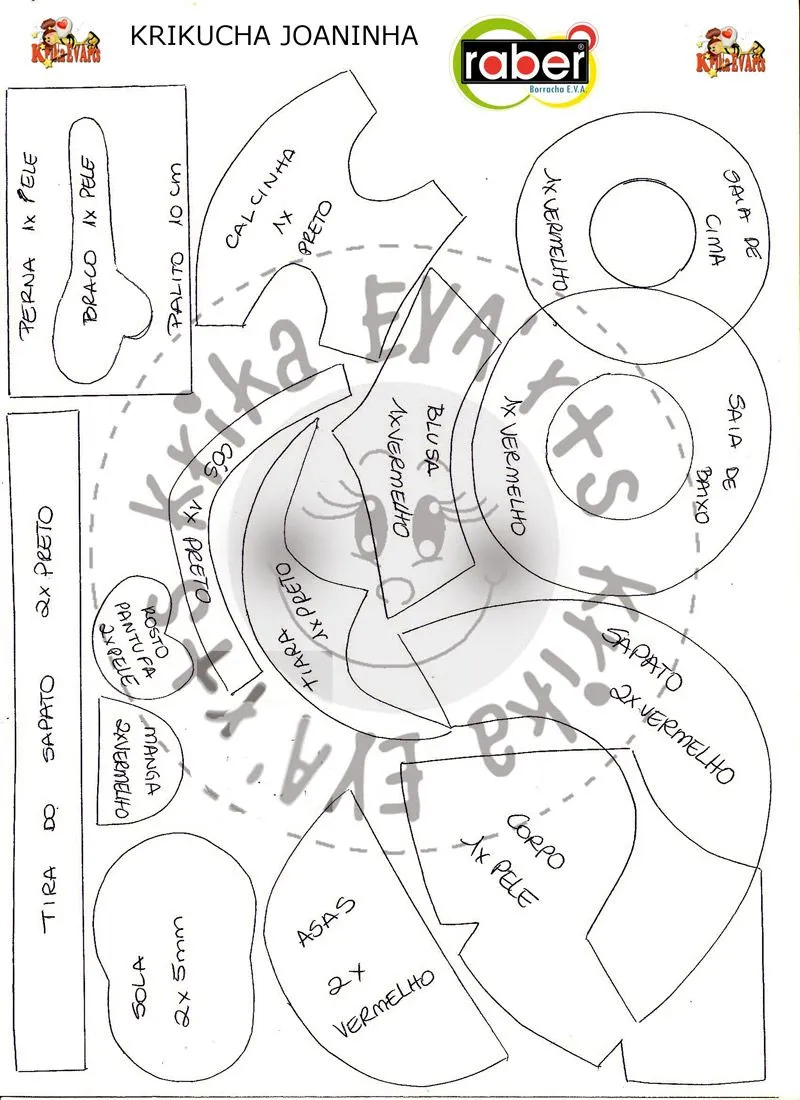 Krika EVArts
KRIKUCHA JOANINHA
raber
Borracha E.V.A.
Krika EVArts
PERNA 1X PELE
BRAÇO 1X PELE
PALITO 10 cm
CALCINHA
1X
PRETO
SAIA DE
CIMA
1X VERMELHO
SAIA DE
BAIXO
1X VERMELHO
BLUSA
1X VERMELHO
CÓS
1X PRETO
TIARA
1X PRETO
TIRA DO SAPATO 2X PRETO
ROSTO
PANTUFA
2X PELE
MANGA
2X VERMELHO
SAPATO
2X VERMELHO
CORPO
1X PELE
ASAS
2X
VERMELHO
SOLA
2X 5mm
Krika EVA'rxs
Krika EVA'rxs